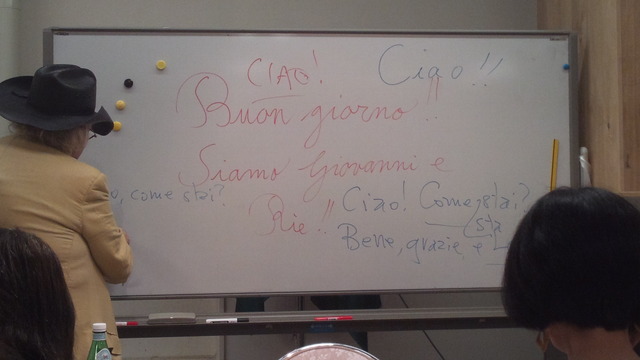 CIAO! Ciao!!
Buon giorno!!
Siamo Giovanni e
Rie!!
come stai?
Ciao! Come stai?
sta
Bene, grazie e